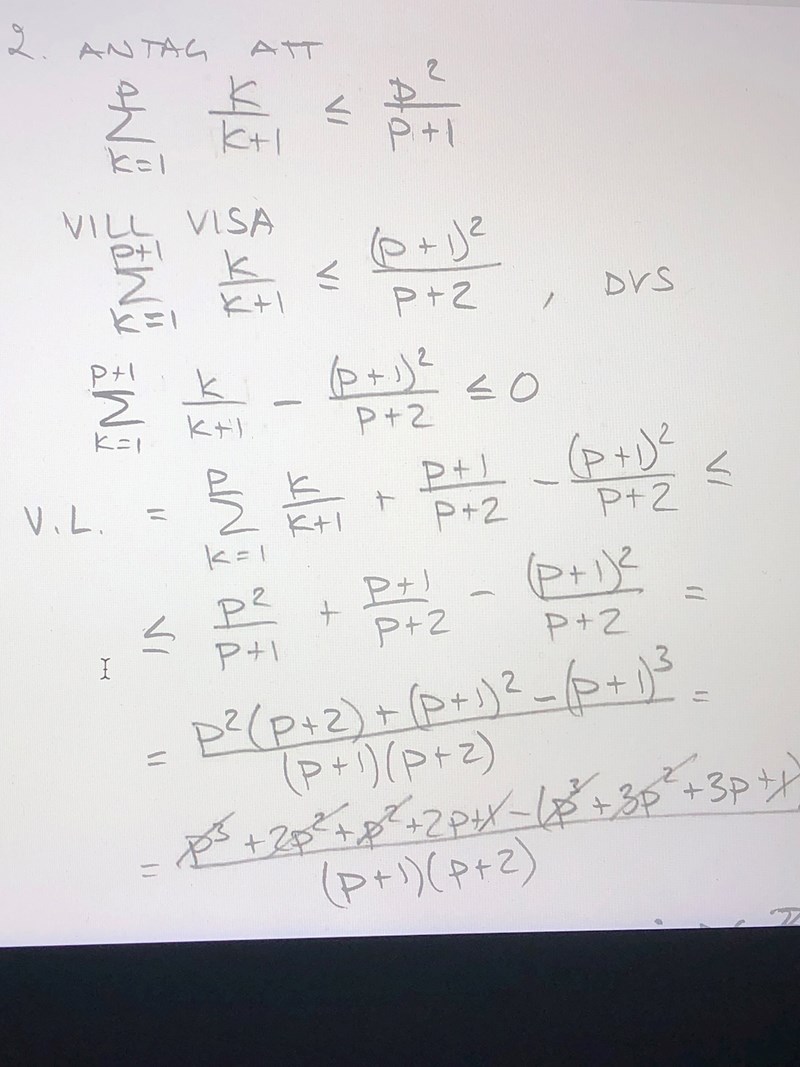 2. ANTAG ATT
p∑k=1 k/(k+1) ≤ p²/(p+1)
VILL VISA
p+1∑k=1 k/(k+1) ≤ (p+1)²/(p+2) , DVS
p+1∑k=1 k/(k+1) - (p+1)²/(p+2) ≤ 0
V.L. = p∑k=1 k/(k+1) + (p+1)/(p+2) - (p+1)²/(p+2) ≤
≤ p²/(p+1) + (p+1)/(p+2) - (p+1)²/(p+2) =
= (p²(p+2)+(p+1)²-(p+1)³)/((p+1)(p+2)) =
= (p³+2p²+p²+2p+1-(p³+3p²+3p+1))/((p+1)(p+2))